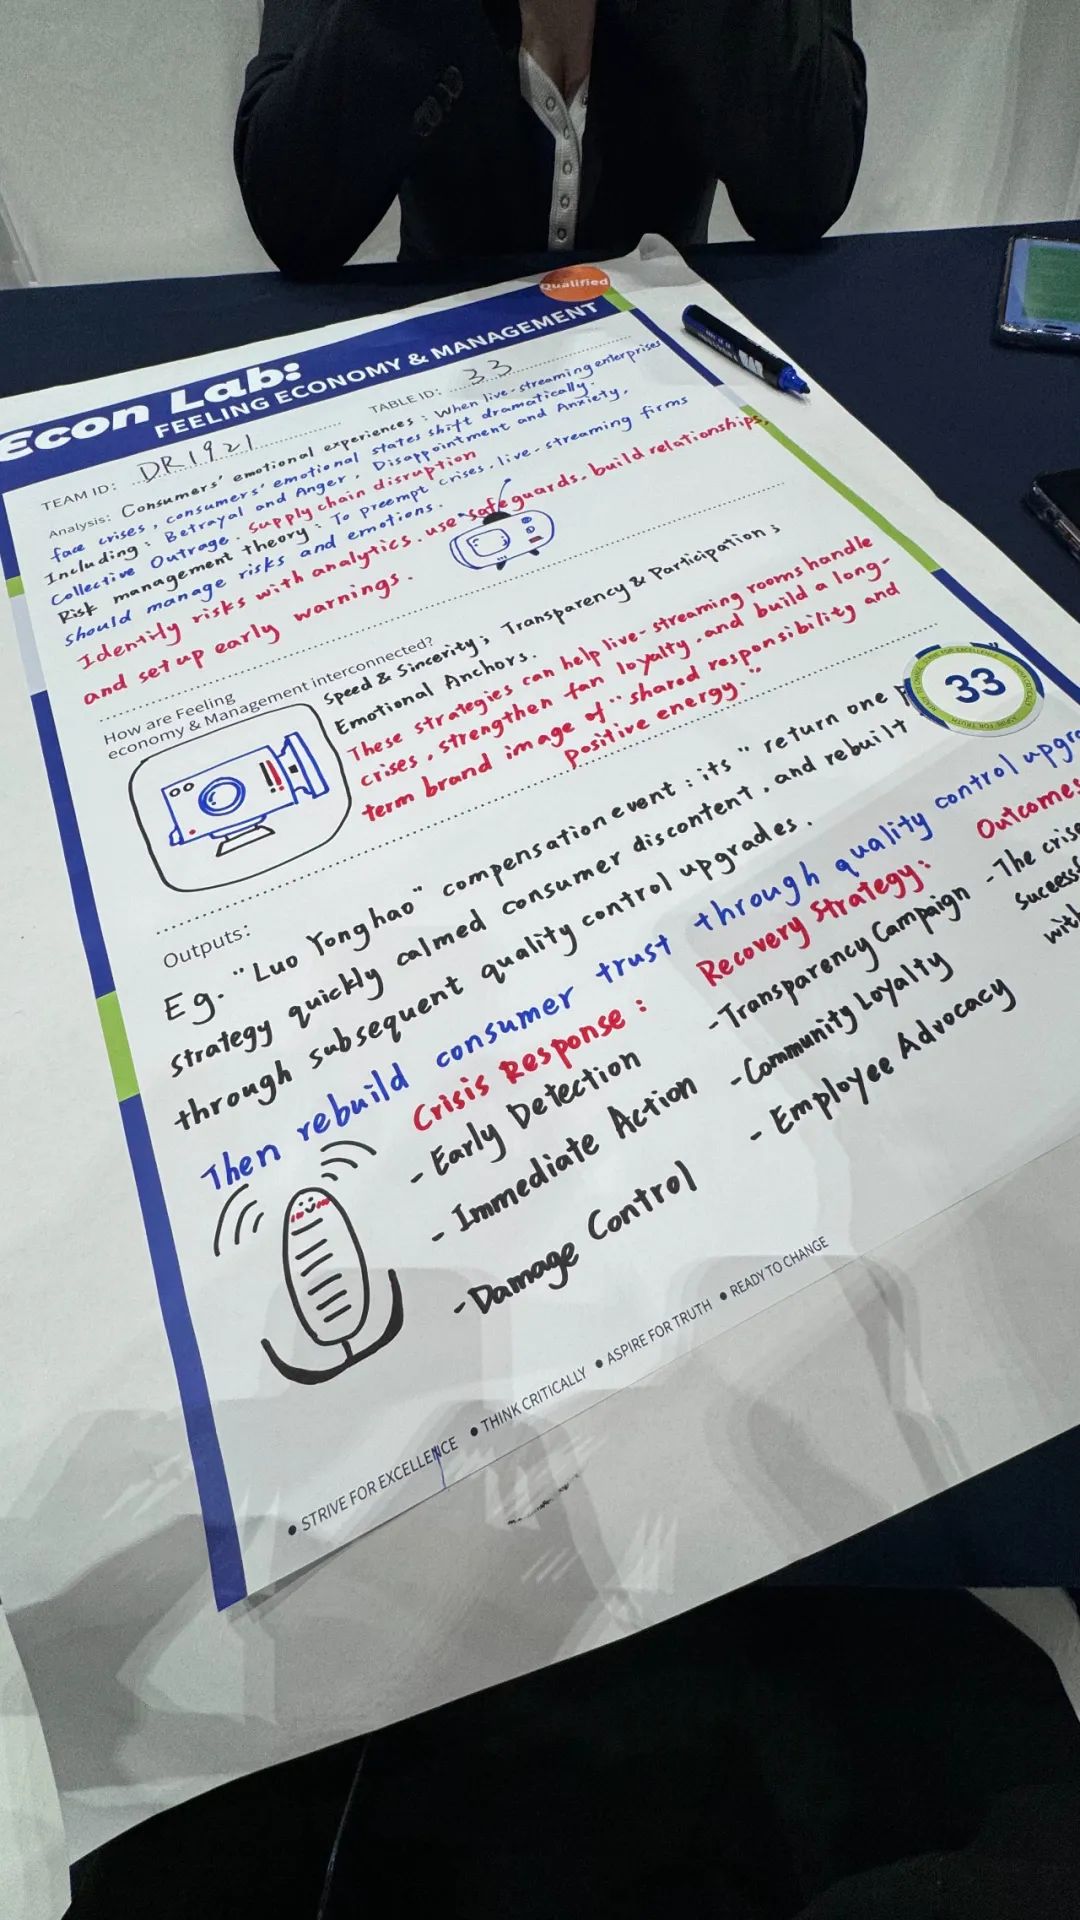 Qualified
Econ Lab:
FEELING ECONOMY & MANAGEMENT
TEAM ID: DR1921
TABLE ID: 33
Analysis: Consumers' emotional experiences: When live-streaming enterprises
face crises, consumers' emotional states shift dramatically.
Including: Betrayal and Anger, Disappointment and Anxiety,
Collective Outrage. supply chain disruption
Risk management theory: To preempt crises, live-streaming firms
should manage risks and emotions.
Identify risks with analytics, use safeguards, build relationships,
and set up early warnings.
How are Feeling
economy & Management interconnected?
Speed & Sincerity; Transparency & Participation;
Emotional Anchors.
These strategies can help live-streaming rooms handle
crises, strengthen fan loyalty, and build a long-
term brand image of "shared responsibility and
positive energy."
33
Outputs:
Eg. "Luo Yonghao" compensation event: its "return one
strategy quickly calmed consumer discontent, and rebuilt
through subsequent quality control upgrades.
Then rebuild consumer trust through quality control
Crisis Response:
- Early Detection
- Immediate Action
- Damage Control
Recovery Strategy:
- Transparency Campaign
- Community Loyalty
- Employee Advocacy
Outcomes
- The
with
• STRIVE FOR EXCELLENCE • THINK CRITICALLY • ASPIRE FOR TRUTH • READY TO CHANGE